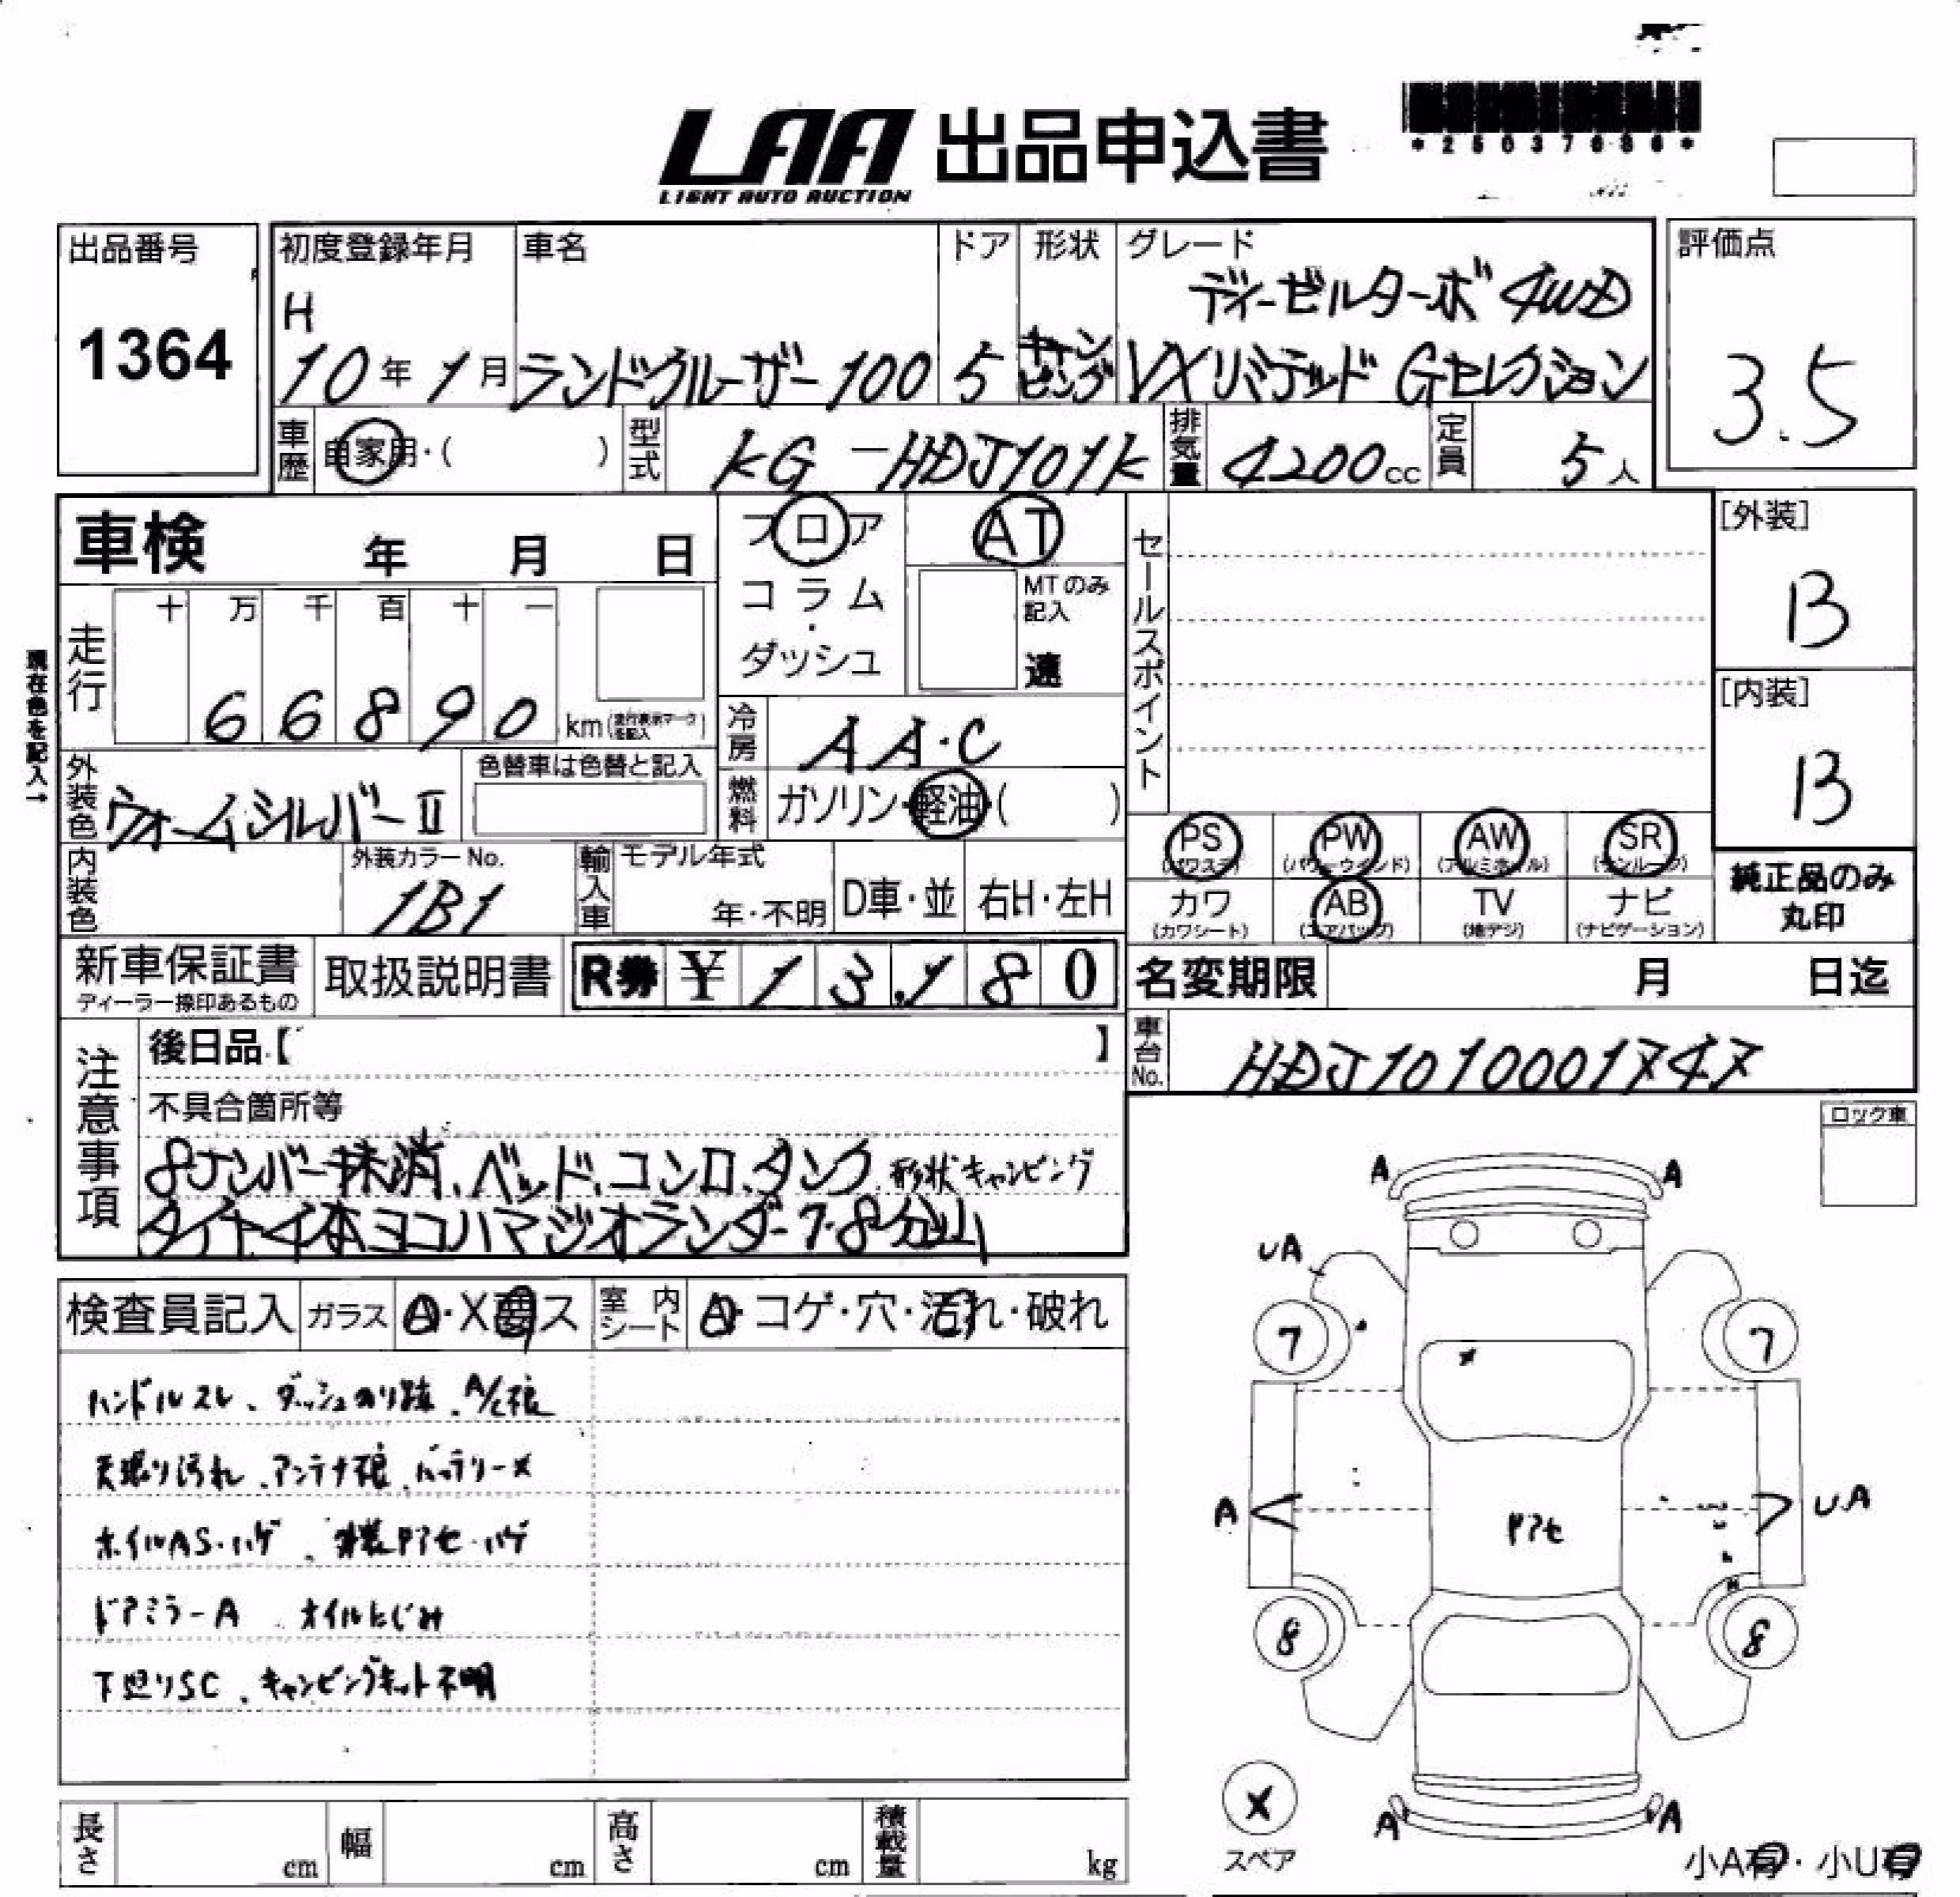 LAA 出品申込書
LIGHT AUTO AUCTION
出品番号
1364
初度登録年月
H
10年1月
車名
ランドクルーザー100
ドア
5
形状
キャンピング
グレード
ディーゼルターボ 4WD
VXリミテッド Gセレクション
評価点
3.5
車歴
自家用・( )
型式
KG-HDJ101K
排気量
4200cc
定員
5人
車検 年 月 日
フロア
コラム・ダッシュ
AT
MTのみ記入
速
セールスポイント
[外装]
B
[内装]
B
現在色を記入→
走行
十 万 千 百 十 一
6 6 8 9 0 km(走行表示マークを記入)
冷房
AA・C
外装色
ウォームシルバーII
色替車は色替と記入
燃料
ガソリン・軽油・( )
PS (パワステ)
PW (パワーウインド)
AW (アルミホイル)
SR (サンルーフ)
カワ (カワシート)
AB (エアバッグ)
TV (地デジ)
ナビ (ナビゲーション)
純正品のみ丸印
内装色
外装カラーNo.
1B1
輸入車
モデル年式
年・不明
D車・並
右H・左H
新車保証書
ディーラー捺印あるもの
取扱説明書
R券 ¥ 13,180
名変期限 月 日迄
車台No.
HDJ1010001747
注意事項
後日品【 】
不具合箇所等
8ナンバー抹消、ベッド、コンロ、タンク、形状キャンピング
タイヤ4本ヨコハマジオランダー7・8分山
ロック車
検査員記入
ガラス
A・X・要ス
室内シート
A・コゲ・穴・汚れ・破れ
ハンドルスレ、ダッシュのり跡、A/C痕
天張り汚れ、アンテナ痕、バッテリー×
ホイルAS・ハゲ、外装色アセ・ハゲ
ドアミラーA、オイルにじみ
下廻りSC、キャンピングキット不明
A
A
UA
7
7
A
色アセ
UA
8
8
X
スペア
A
A
小A有・小U有
長さ cm
幅 cm
高さ cm
積載量 kg